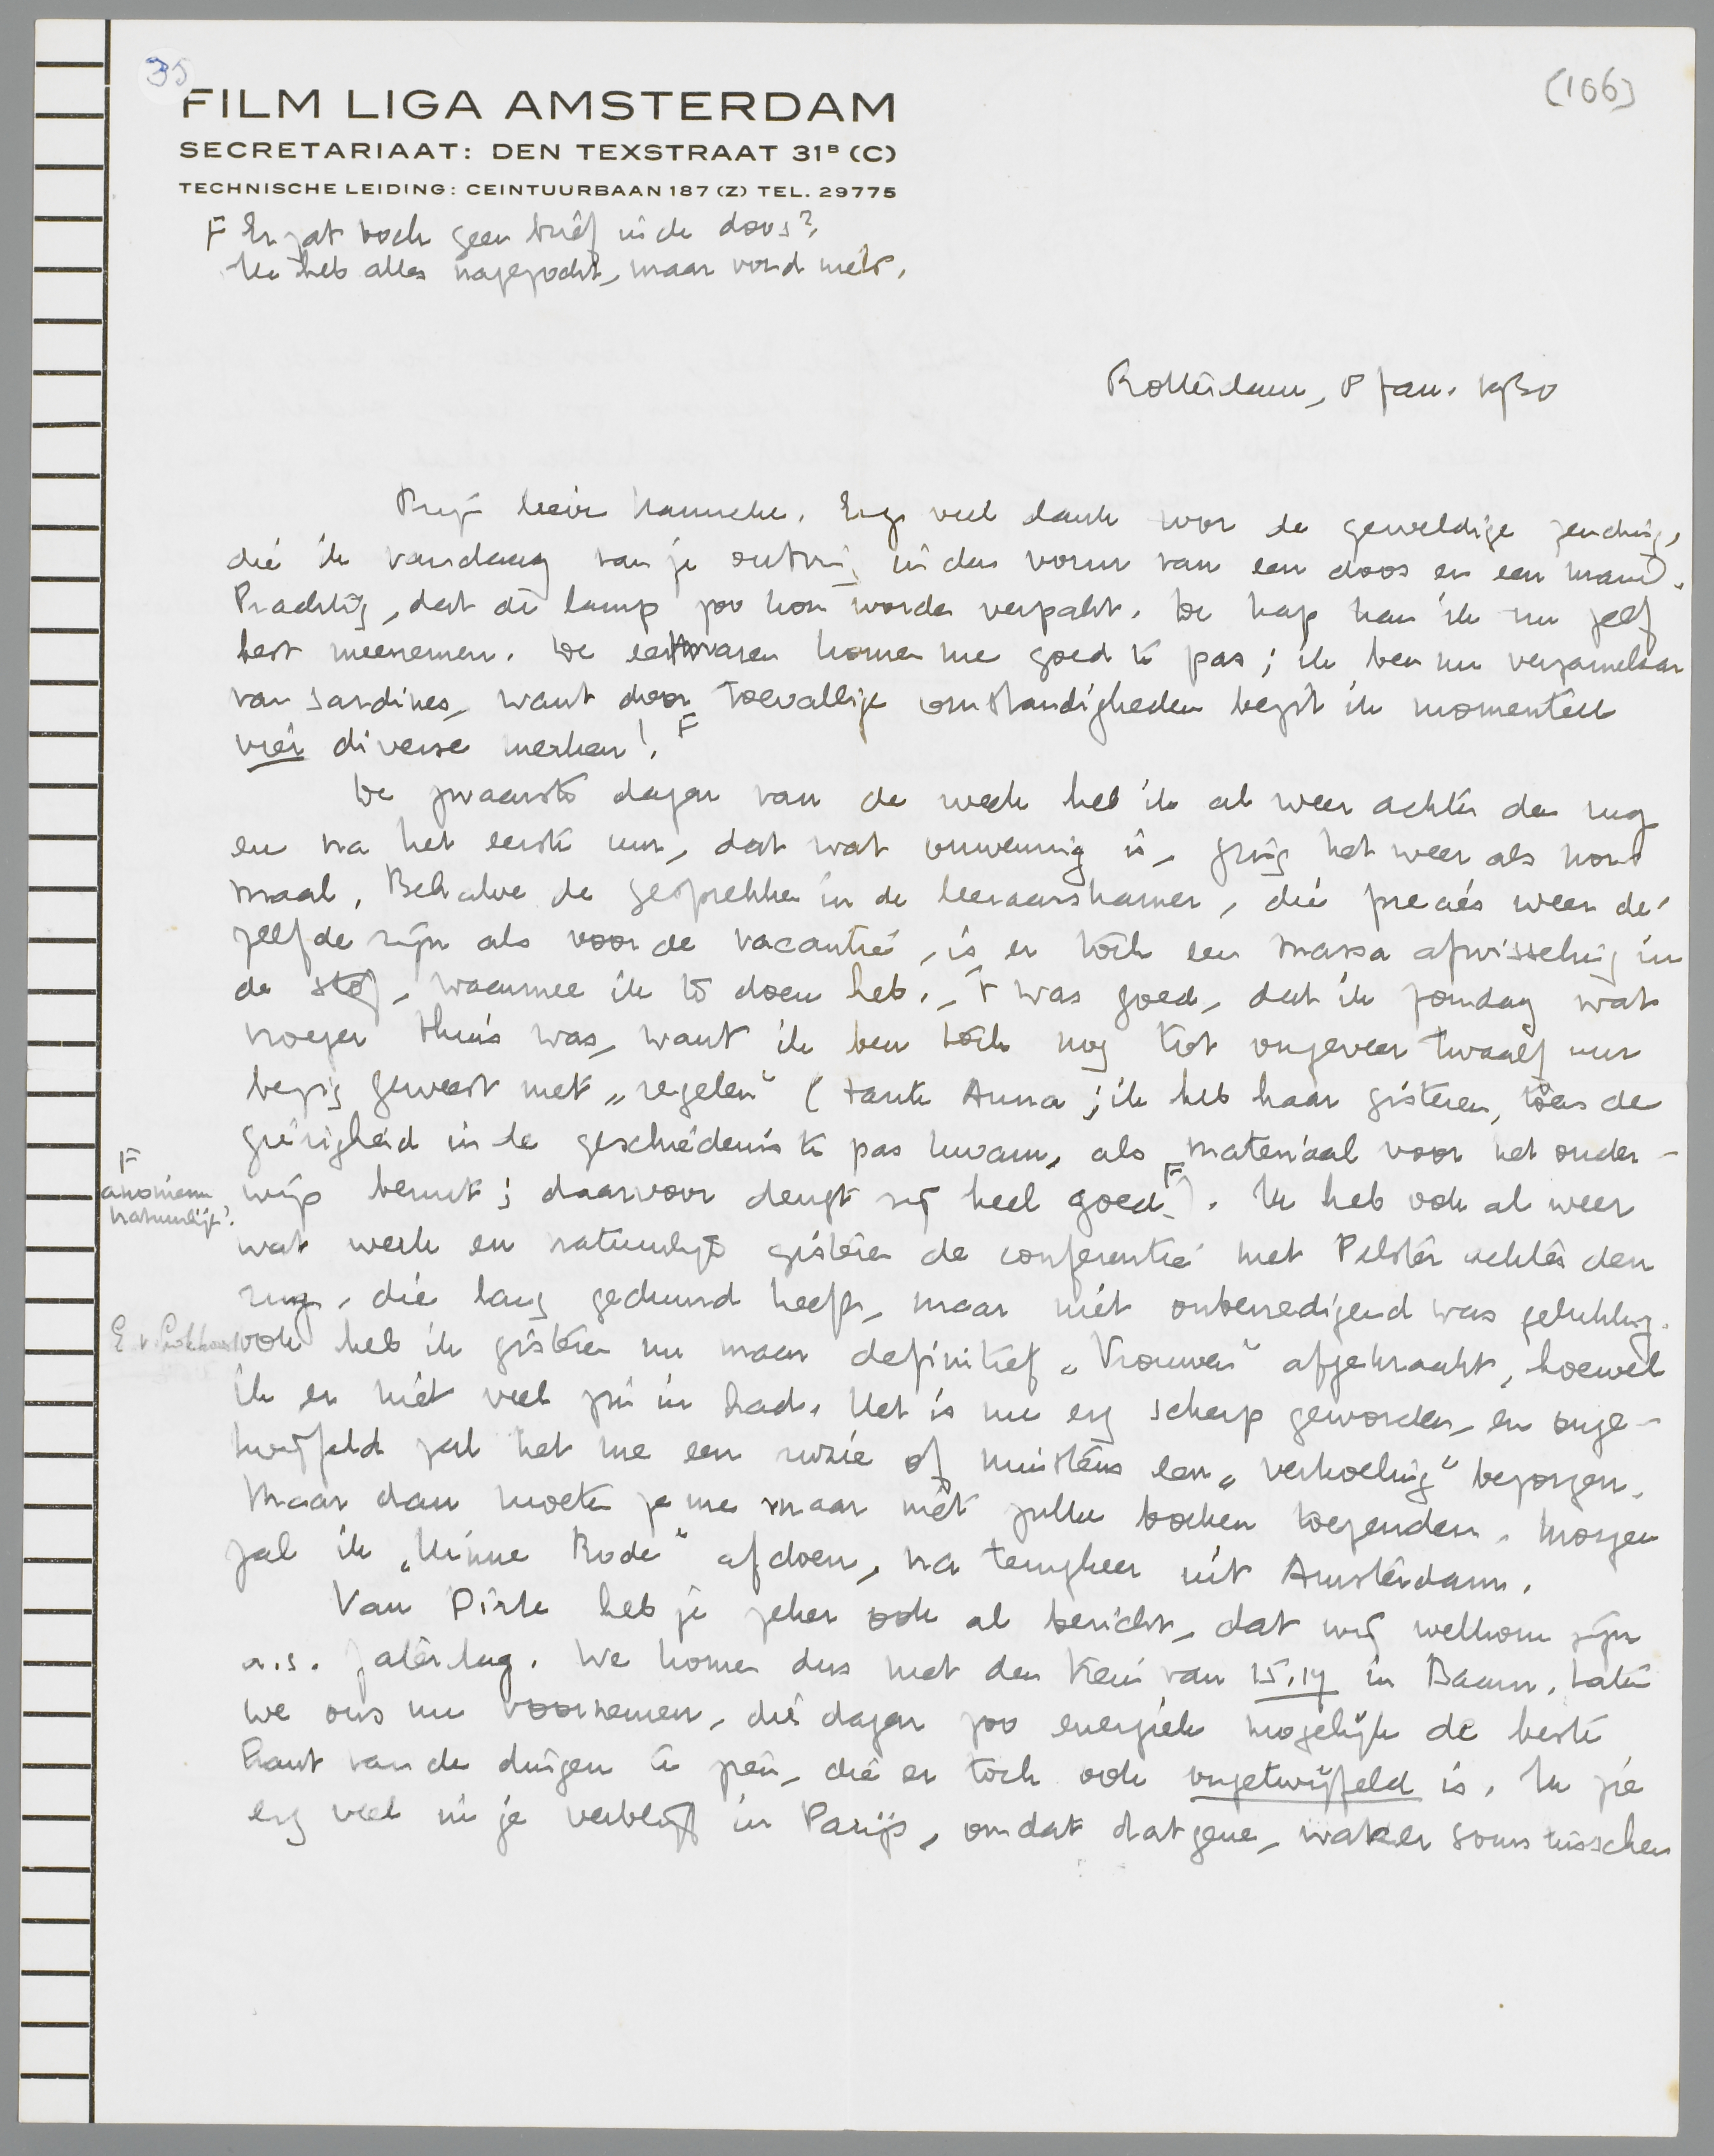 35
(106)
FILM LIGA AMSTERDAM
SECRETARIAAT: DEN TEXSTRAAT 31ᴮ (C)
TECHNISCHE LEIDING: CEINTUURBAAN 187 (Z) TEL. 29775
F Er zat toch geen brief in de doos?
Ik heb alles nagezocht, maar vond niets.
Rotterdam, 8 Jan. 1930
Mijn lieve Hanneke. Erg veel dank voor de geweldige zending,
die ik vandaag van je ontving in den vorm van een doos en een mand.
Prachtig, dat de lamp zoo kon worden verpakt. De kap kan ik nu zelf
best meenemen. De eetwaren komen me goed te pas; ik ben nu verzamelaar
van sardines, want door toevallige omstandigheden bezit ik momenteel
vier diverse merken! F
De zwaarste dagen van de week heb ik al weer achter den rug
en na het eerste uur, dat wat onwennig is, ging het weer als nor-
maal. Behalve de gesprekken in de leeraarskamer, die precies weer de-
zelfde zijn als voor de vacantie, is er toch een massa afwisseling in
de stof, waarmee ik te doen heb. 't was goed, dat ik zondag wat
vroeger thuis was, want ik ben toch nog tot ongeveer twaalf uur
bezig geweest met „regelen" (tante Anna; ik heb haar gisteren, toen de
gierigheid in de geschiedenis te pas kwam, als materiaal voor het onder-
F
anoniem
natuurlijk!
wijs benut; daarvoor deugt zij heel goed F). Ik heb ook al weer
wat werk en natuurlijk gisteren de conferentie met Pelster achter den
rug, die lang geduurd heeft, maar niet onbevredigend was gelukkig.
E v Lokhorst
ook heb ik gisteren nu maar definitief „Vrouwen" afgekraakt, hoewel
ik er niet veel zin in had. Het is nu erg scherp geworden, en onge-
twijfeld zal het me een ruzie of minstens een „verkoeling" bezorgen.
Maar dan moeten ze me maar niet zulke boeken toezenden. Morgen
zal ik „Minne Rode" afdoen, na terugkeer uit Amsterdam.
Van Dirk heb je zeker ook al bericht, dat wij welkom zijn
a.s. Zaterdag. We komen dus met den trein van 15.14 in Baarn. Laten
we ons nu voornemen, die dagen zoo energiek mogelijk de beste
kant van de dingen te zien, die er toch ook ongetwijfeld is. Ik zie
erg veel in je verblijf in Parijs, omdat datgene, wat er soms tusschen